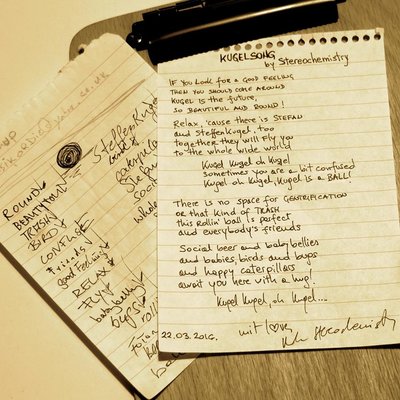 KUGELSONG
by Stereochemistry
IF YOU LOOK FOR A GOOD FEELING
THEN YOU SHOULD COME AROUND
KUGEL IS THE FUTURE,
SO BEAUTIFUL AND ROUND!
Relax, 'cause there is STEFAN
and Steffen Kugel, too
together they will fly you
to the whole wide world
Kugel Kugel oh Kugel
sometimes you are a bit confused
Kugel oh Kugel, Kugel is a BALL!
There is no space for GENTRIFICATION
or that kind of TRASH
this Rollin' ball is perfect
and everybody's friends
Social beer and baby bellies
and babies, birds and bups
and happy caterpillars
await you here with a hug!
Kugel Kugel, oh Kugel...
22.03.2016.
mit
Stereochemistry
Steffen Kugel
ROUND
BEAUTIFUL
TRASH
BIRD
CONFUSE
Friends
good Feeling
RELAX
FLY
baby belly